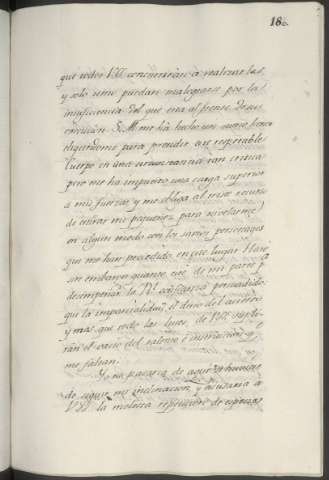 18
que todos VSS. concurrirán a realizar las,
y solo uno puedan malograrse por la
insuficiencia del que está al frente de su
execucion. S.M. me ha hecho un sumo honor
eligiendome para presidir este respetable
Cuerpo en una circunstancia tan critica
pero me ha impuesto una carga superior
a mis fuerzas y me obliga al triste recurso
de estirar mi pequeñez para nivelarme
en algun modo con los sabios personages
que me han precedido en este lugar. Haré
sin embargo quanto esté de mi parte p.ª
desempeñar la R.l confianza persuadido
que la imparcialidad, el deseo del acierto
y mas que todo las luces de VSS. supli-
rán el vacio del talento e instruccion q.e
me faltan.
Yo no pasaria de aqui si huviese
de seguir mi inclinacion, y escusaria a
VSS. la molesta repeticion de especies